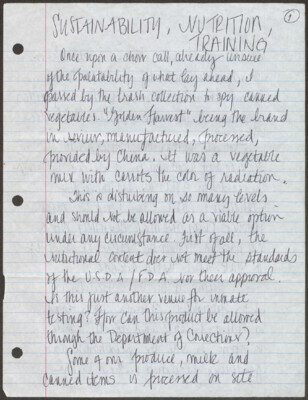 SUSTAINABILITY, NUTRITION, ①
TRAINING
Once upon a chow call, already unsure
of the palatability of what lay ahead, I
passed by the trash collection to spy canned
vegetables. "Golden Harvest" being the brand
in review, manufactured, processed,
provided by China. It was a vegetable
mix with carrots the color of radiation.
This is disturbing on so many levels
and should not be allowed as a viable option
under any circumstance. First of all, the
nutritional content does not meet the standards
of the USDA/FDA nor their approval.
Is this just another venue for inmate
testing? How can this product be allowed
through the Department of Corrections?
Some of our produce, milk and
canned items is processed on site